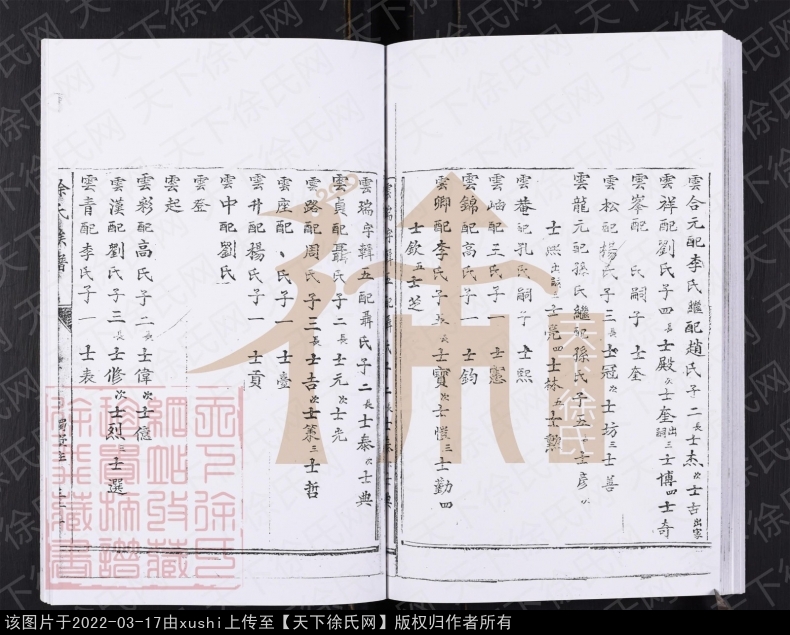 雲合元配李氏繼配趙氏子二長士杰次士古出家
雲祥配劉氏子四長士殿次士奎出嗣三士博四士奇
雲峯配 氏嗣子 士奎
雲松配楊氏子三長士冠次士坊三士善
雲龍元配孫氏繼配孫氏子五長士彥次
士熙出嗣三士亮四士林五士勲
雲菴配孔氏嗣子 士熙
雲岫配三氏子一 士憲
雲錦配高氏子一 士鈞
雲卿配李氏子 長士寶次士愷三士勤四
士欽五士芝
雲瑞字輯五配聶氏子二長士泰次士典
雲貞配聶氏子二長士元次士先
雲路配周氏子三長士吉次士策三士哲
雲座配 氏子一 士臺
雲升配楊氏子一 士貢
雲中配劉氏
雲登
雲起
雲彩配高氏子二長士偉次士億
雲漢配劉氏子三長士修次士烈三士選
雲青配李氏子一 士表
徐氏族譜
天下徐氏
该图片于2022-03-17由xushi上传至【天下徐氏网】版权归作者所有